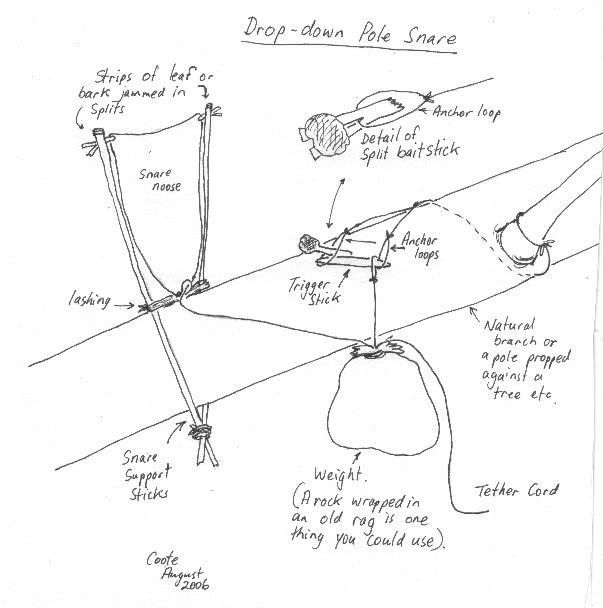 Drop-down Pole Snare
Strips of leaf or
bark jammed in
Splits
Snare
noose
Anchor loop
Detail of
Split bait stick
Anchor
loops
Trigger
Stick
lashing
Natural
branch or
a pole propped
against a
tree etc.
Snare
Support
Sticks
Weight.
(A rock wrapped in
an old rag is one
thing you could use).
Tether Cord
Coote
August
2006